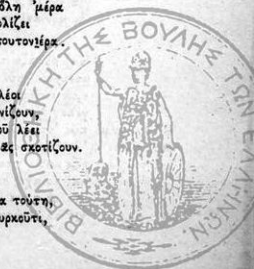 βλη 'μέρα
ολίζει
πουτονιέρα.
λέοι
νίζουν,
οῦ λέει
ᾶς σκοτίζουν.
α τούτη,
υρκοῦτι,
ΒΙΒΛΙΟΘΗΚΗ ΤΗΣ ΒΟΥΛΗΣ ΤΩΝ ΕΛΛΗΝΩΝ